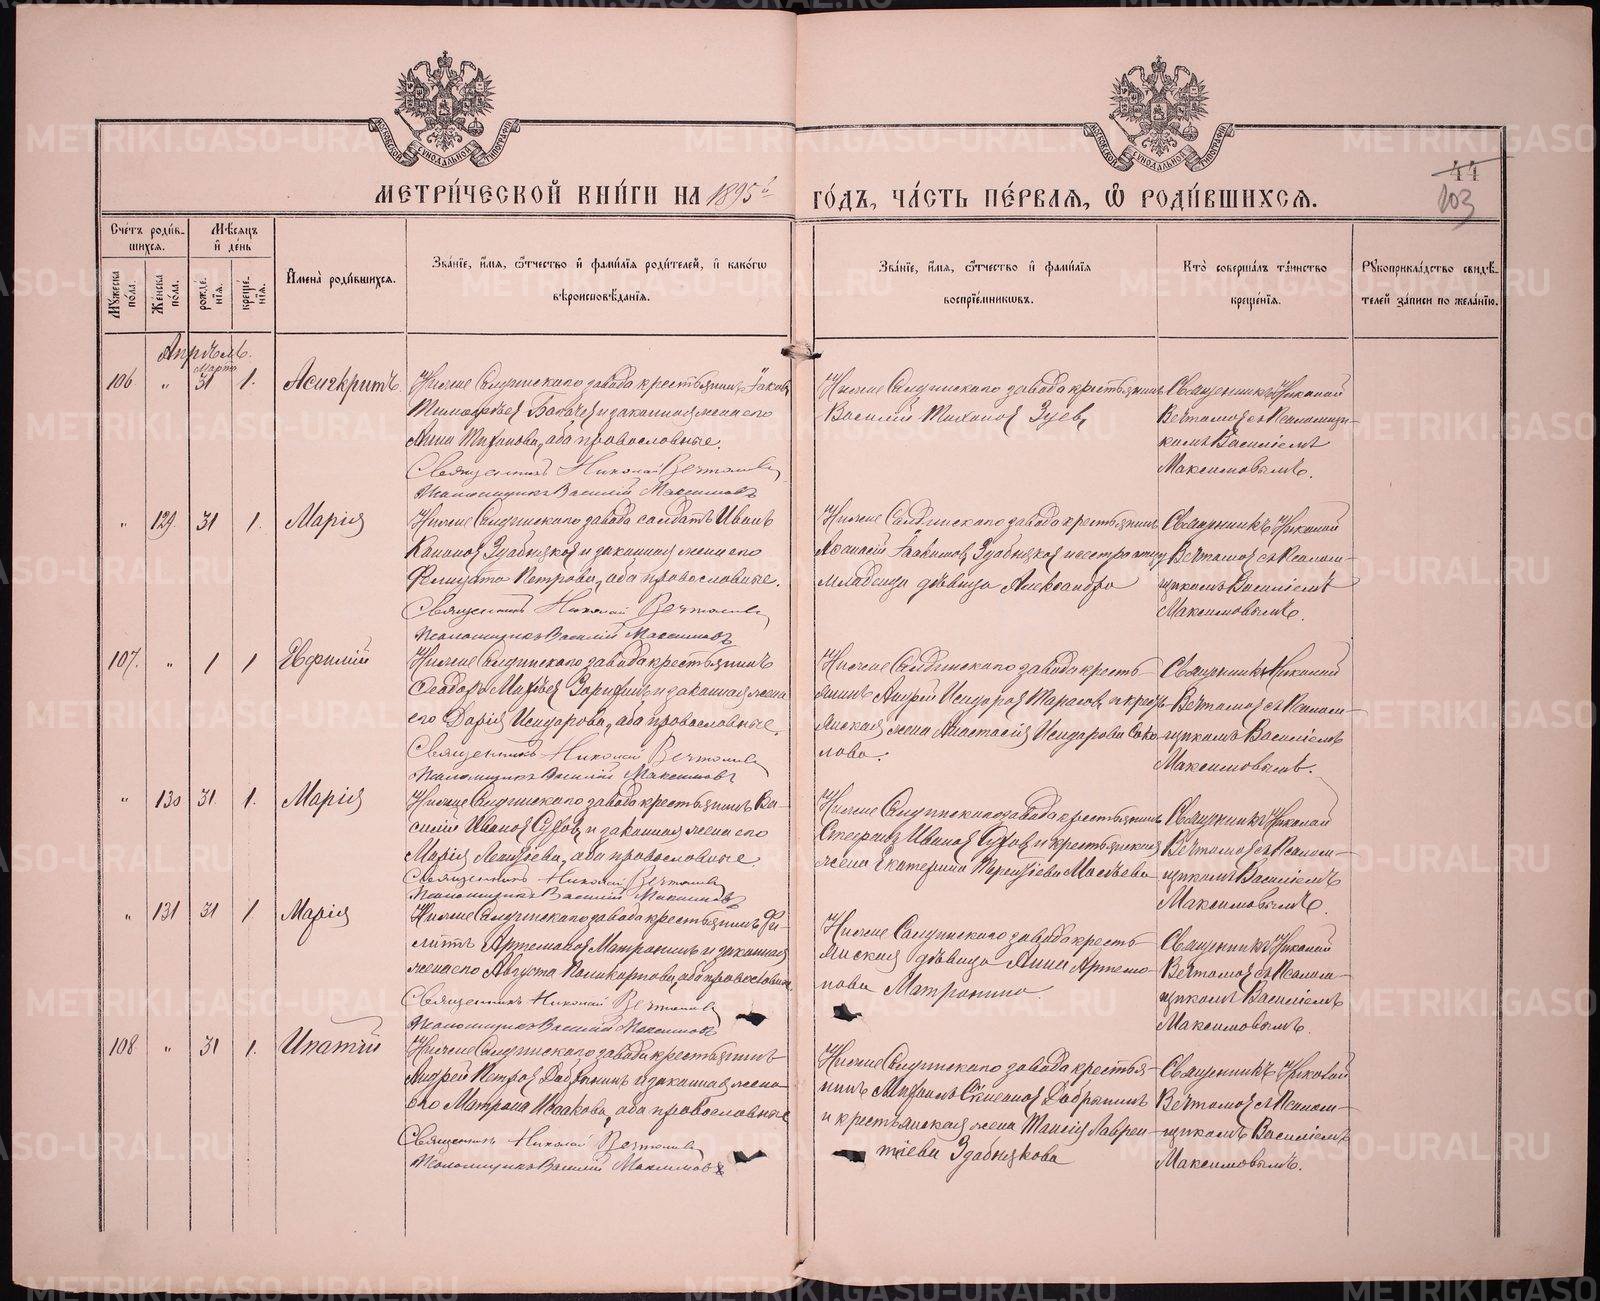 МЕТРИ́ЧЕСКОЙ КНИ́ГИ НА 1895й ГО́ДЪ, ЧА́СТЬ ПЕ́РВАЯ, Ѡ РОДИ́ВШИХСЯ.
44
103
Сче́тъ роди́в-
шихся.
Мѣ́сяцъ
и де́нь
И҆мена̀ роди́вшихся.
Зва́нїе, и҆́мя, ѻ҆́тчество и҆ фами́лїя роди́телей, и҆ како́гѡ
вѣроисповѣ́данїя.
Зва́нїе, и҆́мя, ѻ҆́тчество и҆ фами́лїя
воспрїе́мниковъ.
Кто̀ соверша́лъ та́инство
креще́нїя.
Рꙋкоприкла́дство свидѣ́-
телей за́писи по жела́нїю.
Мꙋ́жеска
по́ла.
Же́нска
по́ла.
рожде́-
нїя.
креще́-
нїя.
Апрѣль.
Марта
106 " 31 1. Асигкритъ.
Нижне Салдинскаго завода крестьянинъ Іаковъ
Анна Тихонова, оба православные.
Священникъ Николай Вечтомовъ
Псаломщикъ Василій Максимовъ
Нижне Салдинскаго завода крестьянинъ
Василій Тихоновъ Зуевъ
Священникъ Николай
Вечтомовъ съ Псаломщи-
комъ Василіемъ
Максимовымъ.
" 129. 31 1. Марія
Нижне Салдинскаго завода солдатъ Иванъ
и законная жена его
Петрова, оба православные.
Священникъ Николай Вечтомовъ
Псаломщикъ Василій Максимовъ
Нижне Салдинскаго завода крестьянинъ
младенца дѣвица Александра
Священникъ Николай
Вечтомовъ съ Псалом-
щикомъ Василіемъ
Максимовымъ.
107. " 1 1 Евфимій
Нижне Салдинскаго завода крестьянинъ
и законная жена
его Дарія Исидорова, оба православные.
Священникъ Николай Вечтомовъ
Псаломщикъ Василій Максимовъ
Нижне Салдинскаго завода кресть-
янинъ Андрей Исидоровъ Тарасовъ и кресть-
янская жена Анастасія Исидорова Соко-
лова.
Священникъ Николай
Вечтомовъ съ Псалом-
щикомъ Василіемъ
Максимовымъ.
" 130 31. 1. Марія
Нижне Салдинскаго завода крестьянинъ Ва-
силій Ивановъ Суховъ и законная жена его
Марія Леонтьева, оба православные
Священникъ Николай Вечтомовъ
Псаломщикъ Василій Максимовъ
Нижне Салдинскаго завода крестьянинъ
Стефанъ Ивановъ Суховъ и крестьянская
жена Екатерина
Священникъ Николай
Вечтомовъ съ Псалом-
щикомъ Василіемъ
Максимовымъ.
" 131 31 1. Марія
Нижне Салдинскаго завода крестьянинъ Фи-
липпъ Артемоновъ Матронинъ и законная
жена его Августа Поликарпова, оба православн.
Священникъ Николай Вечтомовъ
Псаломщикъ Василій Максимовъ
Нижне Салдинскаго завода кресть-
янская дѣвица Анна Артемо-
нова Матронина.
Священникъ Николай
Вечтомовъ съ Псалом-
щикомъ Василіемъ
Максимовымъ.
108 " 31 1. Ипатій
Нижне Салдинскаго завода крестьянинъ
Андрей Петровъ Добрынинъ и законная жена
его Матрона Исаакова, оба православные
Священникъ Николай Вечтомовъ
Псаломщикъ Василій Максимовъ
Нижне Салдинскаго завода крестья-
нинъ Добрынинъ
и крестьянская жена Таисія Лаврен-
тіева
Священникъ Николай
Вечтомовъ съ Псалом-
щикомъ Василіемъ
Максимовымъ.
METRIKI.GASO-URAL.RU